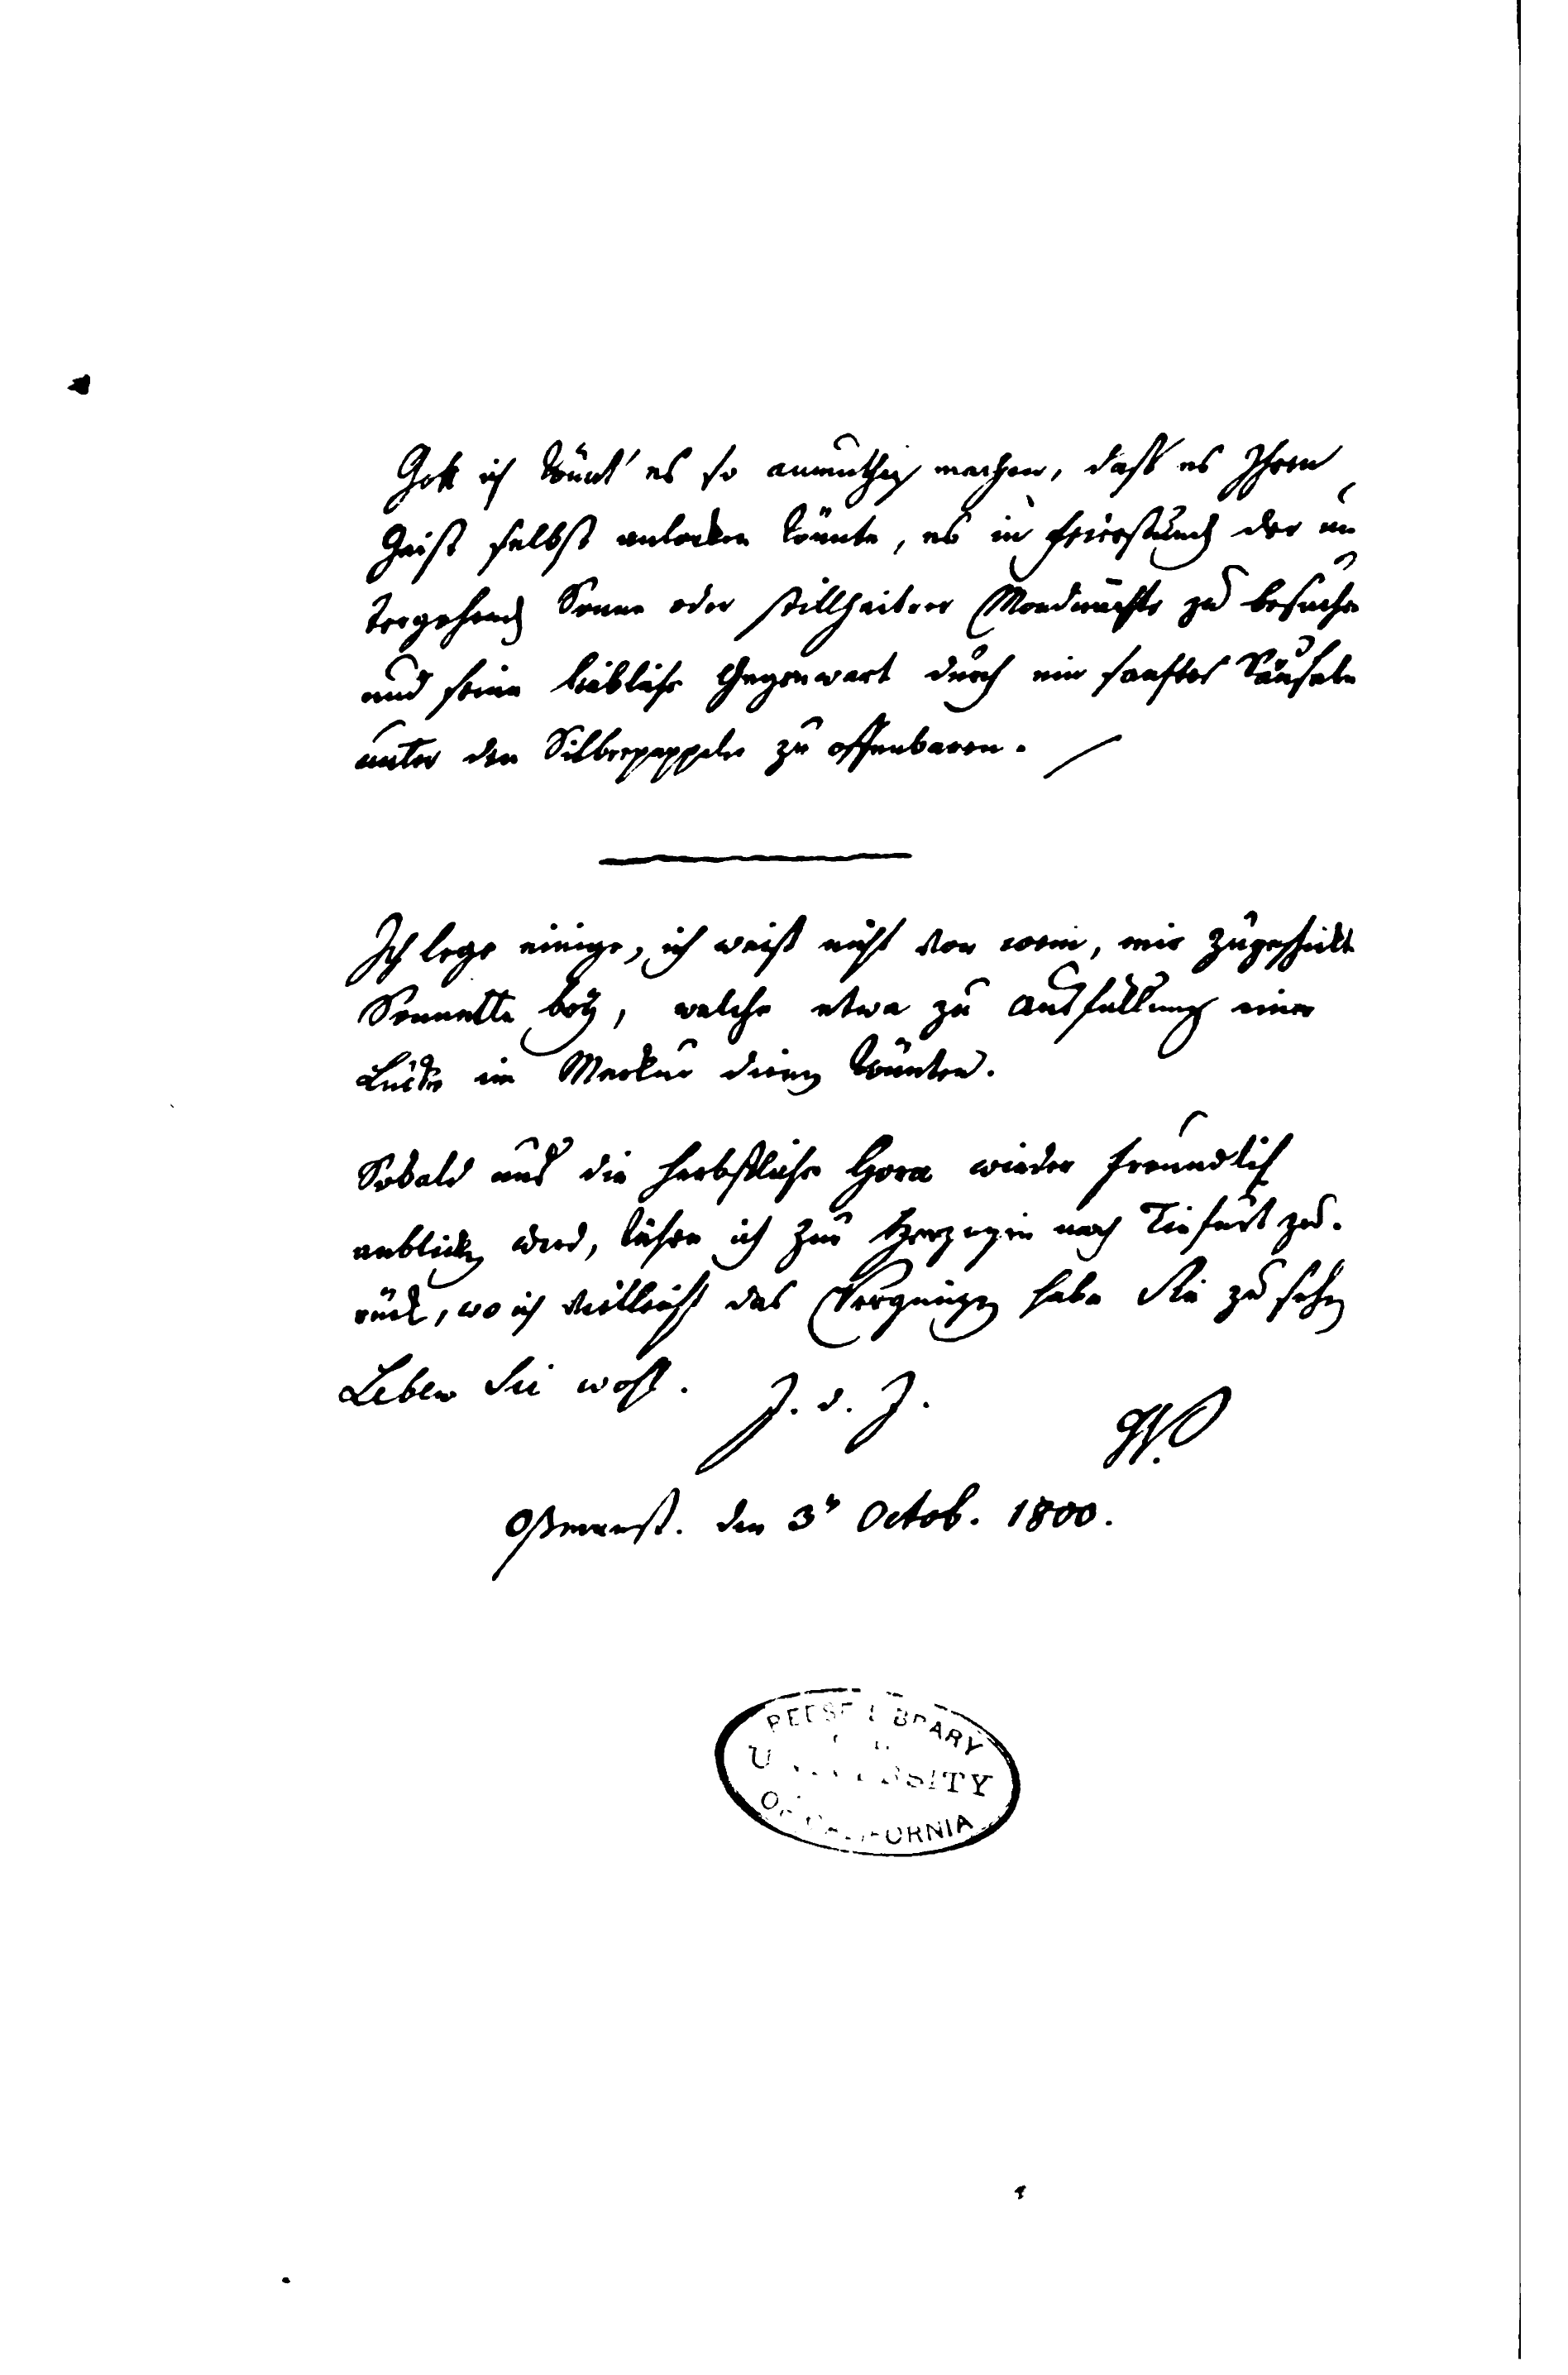 Gott ich könnt' es so anmuthig machen, daß es Ihren
Geist selbst anlocken könnte, es in Feierstunden der un
tergehenden Sonne oder stillheitrer Mondnächte zu besuchen
und seine liebliche Gegenwart durch ein sanftes Säuseln
unter den Silberpappeln zu offenbaren.
Ich lege einige, ich weiß nicht von wem, mir zugeschickte
Sonnette bey, welche etwa zu Ausfüllung einer
Lücke im Merkur dienen könnten.
Sobald uns die herbstliche Hora wieder freundlich
anblicken wird, kehre ich zur Herzogin nach Tiefurt zu-
rück, wo ich vielleicht das Vergnügen habe Sie zu sehen
Leben Sie wohl. J. d. J.
W.
Oßmanst. den 3n Octob. 1800.
REESE LIBRARY
UNIVERSITY
OF CALIFORNIA